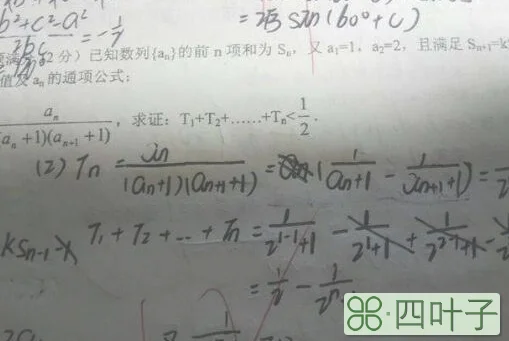 b²+c²-a² / 2bc = -1/7
=2√3 sin(60°+C)
2分) 已知数列{aₙ}的前 n 项和为 Sₙ，又 a₁=1，a₂=2，且满足 Sₙ₊₁=k
值及 aₙ 的通项公式；
aₙ / (aₙ+1)(aₙ₊₁+1)，求证：T₁+T₂+……+Tₙ<1/2.
(2) Tₙ = aₙ / (aₙ+1)(aₙ₊₁+1) = (1/(aₙ+1) - 1/(aₙ₊₁+1)) =
kSₙ₋₁ T₁+T₂+…+Tₙ = 1/(2¹⁻¹+1) - 1/(2¹+1) + 1/(2²⁻¹+1) -
= 1/2 - 1/2ⁿ
四叶子